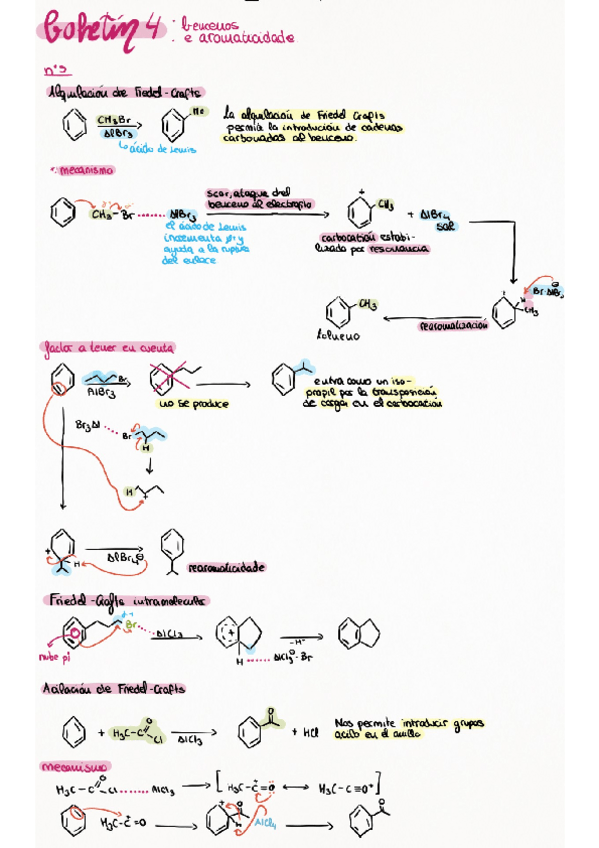 Boletín 4 : bencenos
e aromaticidade
nº5
Alquilación de Friedel-Crafts
CH3Br
AlBr3
Me
ácido de Lewis
La alquilación de Friedel Crafts
permite la introdución de cadenas
carbonadas al benceno.
mecanismo
CH3 - Br AlBr3
el ácido de Lewis
incrementa δ+ y
ayuda a la ruptura
del enlace
SEAr, ataque del
benceno al electrófilo
CH3
+ AlBr4
sal
carbocatión estabi-
lizado por resonancia
Br-AlBr3
H
CH3
rearomatización
CH3
tolueno
factor a tener en cuenta
Br
AlBr3
no se produce
entra como un iso-
propil por la transposición
de cargas en el carbocatión
Br3Al
Br
H
H
+
+
H
AlBr4
rearomaticidade
Friedel-Crafts intramolecular
δ+
Br
AlCl3
nube pi
+
H AlCl3-Br
-H+
Acilación de Friedel-Crafts
+ H3C-C
O
Cl
AlCl3
O
+ HCl
Nos permite introducir grupos
acilo en el anillo
mecanismo
H3C-C
O
Cl AlCl3
[H3C-C=O
H3C-C≡O+]
H3C-C=O
+
O
H
AlCl4
O